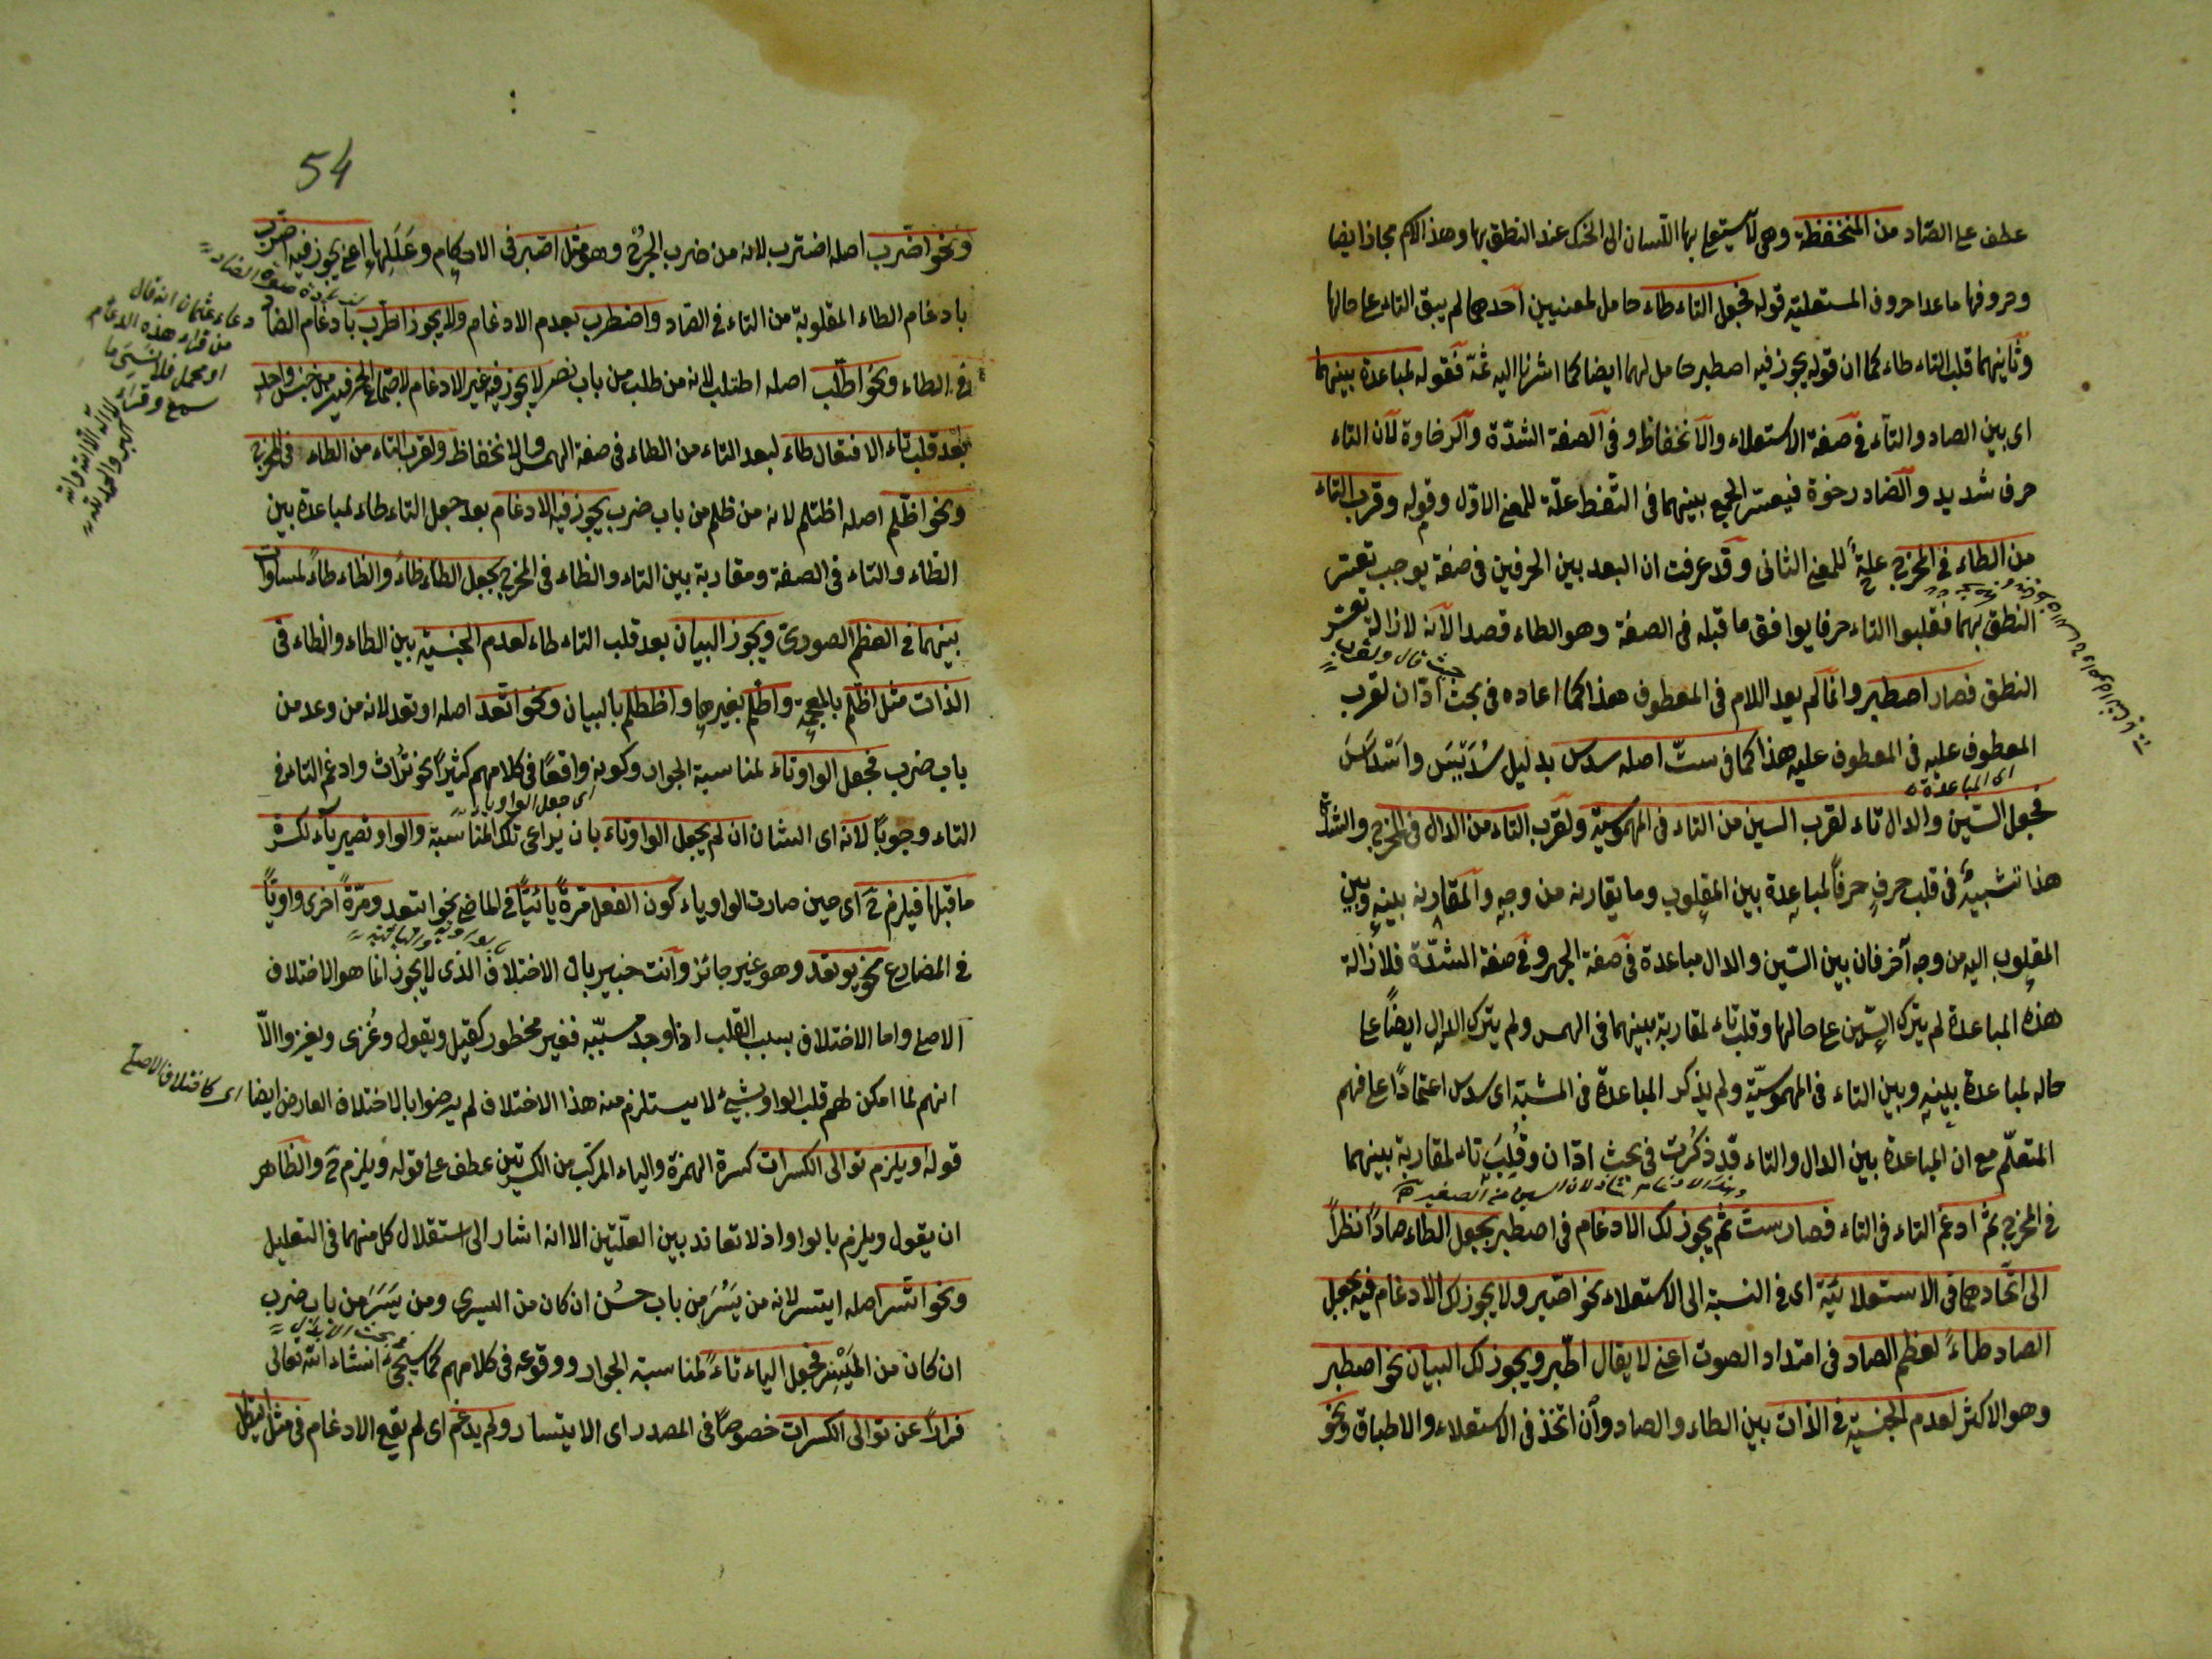 عطف على الصاد من المنخفظة وهى لا يستعلى بها اللسان الى الحنك عند النطق بها وهذا الكلام مجاز ايضا
وحروفها ماعدا حروف المستعلية قوله فجعل التاء طاء حامل لمعنيين احدهما لم يبق التاء على حالها
وثانيهما قلب التاء طاء كما ان قوله يجوز فيه اصطبر حامل لهما ايضا كما اشرنا اليه ثمّة فقوله لمباعدة بينهما
اى بين الصاد والتاء فى صفة الاستعلاء والانخفاظ وفى الصفة الشدّة والرخاوة لان التاء
حرف شديد والضاد رخوة فيعسر الجمع بينهما فى التّفظ علّة للمعنى الاوّل وقوله وقرب التاء
من الطاء فى المخرج علةً للمعنى الثانى وقد عرفت ان البعد بين الحرفين فى صفة يوجب تعسّر
النطق بهما فقلبوا التاء حرفا يوافق ما قبله فى الصفة وهو الطاء قصد الآنة لازالة تعسّر
حيث قال ولقرب
النطق فصار اصطبر وانما لم يعد اللام فى المعطوف هذا كما اعاده فى بحث ادّان لقرب
المعطوف عليه فى المعطوف عليه هذا كما فى ستّ اصله سدس بدليل سُدَيْسَ واسْدَاسَ
اى المباعدة
فجعل السّين والدال تاء لقرب السين من التاء فى المهموسية ولقرب التاء من الدال فى المخرج والشدّة
هذا تشبيهٌ فى قلب حرفٍ حرفاً لمباعدة بين المقلوب وما يقارنه من وجه والمقارنه بينه وبين
المقلوب اليه من وجه آخر فان بين السّين والدال مباعدة فى صفة الجهر وفى صفة الشدّة فلازالة
هذه المباعدة لم يترك السّين على حالها وقلب تاء لمقاربة بينهما فى الهمس ولم يترك الدال ايضاً على
حاله لمباعدة بينه وبين التاء فى المهموسيّة ولم يذكر المباعدة فى المشبّه اى سدس اعتماداً على فهم
المتعلّم مع ان المباعدة بين الدال والتاء قد ذكرت فى بحث ادّان وقُلِبَ تاء لمقاربة بينهما
وهذا الادغام شاذ لان السين من الصفير
فى المخرج ثمّ ادغم التاء فى التاء فصار ستّ ثم يجوز لك الادغام فى اصطبر بجعل الطاء صاداً نظراً
الى اتّحادهما فى الاستعلائيّة اى فى النسبة الى الاستعلاء نحو اصّبر ولا يجوز لك الادغام فيه بجعل
الصاد طاءً لعظم الصاد فى امتداد الصوت اعنى لا يقال اطّبر ويجوز لك البيان نحو اصطبر
وهو الاكثر لعدم الجنسيّة فى الذات بين الطاء والصاد وان اتّخذ فى الاستعلاء والاطباق ونحو
54
ونحو اضّرب اصله اضترب لانه من ضرب الجرح وهو مثل اصّبر فى الاحكام وعَلَلِهَا اعنى يجوز فيه اضّرب
بادغام الطاء المقلوبة من التاء فى الضاد واضطرب بعدم الادغام ولا يجوز اطّرب بادغام الضاد
فى الطاء ونحو اطّلب اصله اطتلب لانه من طلب من باب نصر لا يجوز فيه غير الادغام لاجتماع الحرفين من جنس واحد
بعد قلب تاء الافتعال طاء لبعد التاء من الطاء فى صفة الهمس والانخفاظ ولقرب التاء من الطاء فى المخرج
ونحو اظّلم اصله اظتلم لانه من ظلم من باب ضرب يجوز فيه الادغام بعد جعل التاء طاء لمباعدة بين
الظاء والتاء فى الصفة ومقاربة بين التاء والطاء فى المخرج بجعل الطاء ظاءً والظاء طاءً لمساوات
بينهما فى العظم الصورى ويجوز البيان بعد قلب التاء طاء لعدم الجنسيّة بين الطاء والظاء فى
الذات مثل اظّلم بالمعجمة واطّلم بغيرها واظطلم بالبيان ونحو اتّعد اصله اوتعد لانه من وعد من
باب ضرب فجعل الواو تاء لمناسبة الجوار وكونه واقعًا فى كلامهم كثيرًا نحو تُراث وادغم التاء فى
اى جعل الواو تاء
التاء وجوبًا لانه اى الشان ان لم يجعل الواو تاء بان يراعى تلك المناسبة والواو تصير ياء لكسرة
ما قبلها فيلزم ح اى حين صارت الواو ياء كون الفعل مرّةً يائيًا فى الماضى نحو ايتعد ومرّةً اخرى واويًا
فى المضارع نحو يوتعد وهو غير جائز وانت خبير بان الاختلاف الذى لا يجوز انما هو الاختلاف
الاصلى واما الاختلاف بسبب القلب اذا وجد سببه فغير محظور كقيل ويقول وغُزى ويغزوا الّا
انهم لما امكن لهم قلب الواو بشىءٍ لا يستلزم منه هذا الاختلاف لم يرضوا بالاختلاف العارض ايضا
اى كاختلاف الاصلى
قوله ويلزم توالى الكسرات كسرة الهمزة والياء المركب من الكسرتين عطف على قوله ويلزم ح والظاهر
ان يقول ويلزم بالواو اذ لا تعاند بين العلّتين الا انه اشار الى استقلال كل منهما فى التعليل
ونحو اتّسر اصله ايتسر لانه من يَسُرَ من باب حسُن ان كان من اليسرى ومن يَسَرَ من باب ضرب
ان كان من المَيْسِر فجعل الياء تاءً لمناسبة الجوار ووقوعه فى كلامهم كما سيجىء انشاء الله تعالى
فراراً عن توالى الكسرات خصوصًا فى المصدر اى الايتسار ولم يدغم اى لم يقع الادغام فى مثل ايتكل
من قراء هذه الادغام
سمع وقراء